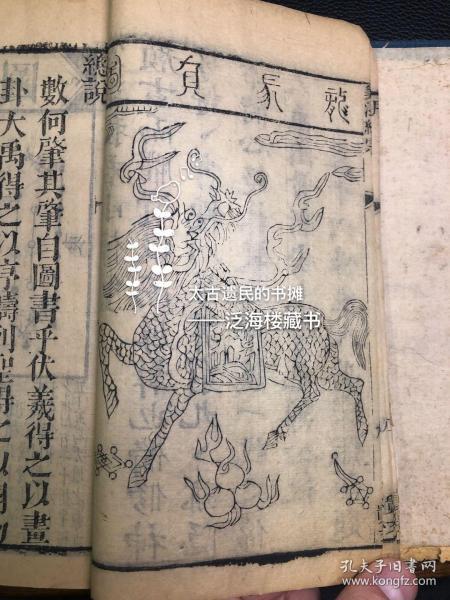 龍馬負圖
總說
數何肇其肇自圖書乎伏羲得之以畫
卦大禹得之以序疇列聖得之以開
太古遗民的书摊
——泛海楼藏书
孔夫子旧书网
www.kongfz.com